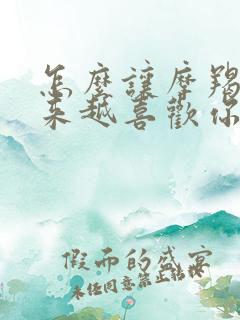 怎麼讓摩羯
來越喜歡你
假而的盛宴
未经同意禁止转载